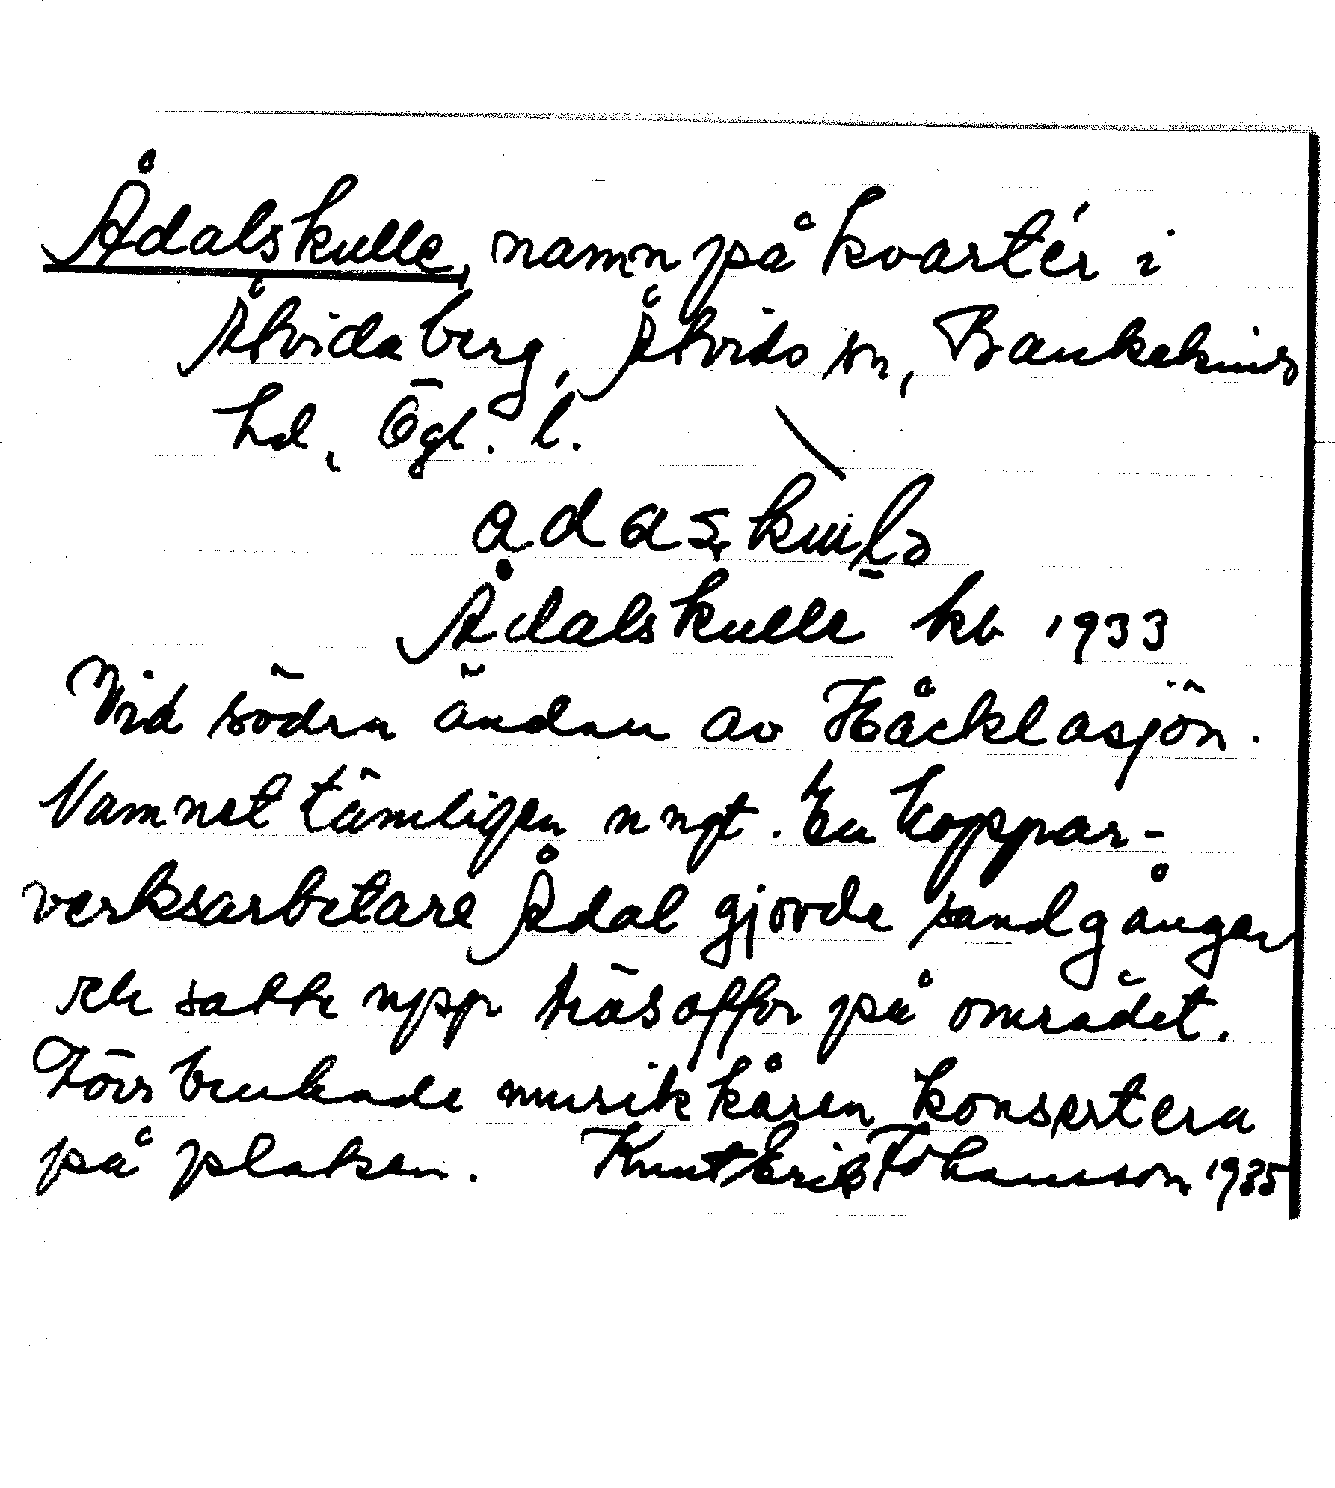 Ådalskulle, namn på kvartér i
Åtvidaberg, Åtvids sn, Bankekinds
hd, Ögl. l.
Ådalskulle kb 1933
Vid södra ändan av Håcklasjön.
Namnet tämligen nngt. En koppar-
verksarbetare Ådal gjorde sandgångar
och satte upp träsoffor på området.
Förr brukade musikkåren konsertera
på platsen. Knut Erik Johansson 1935